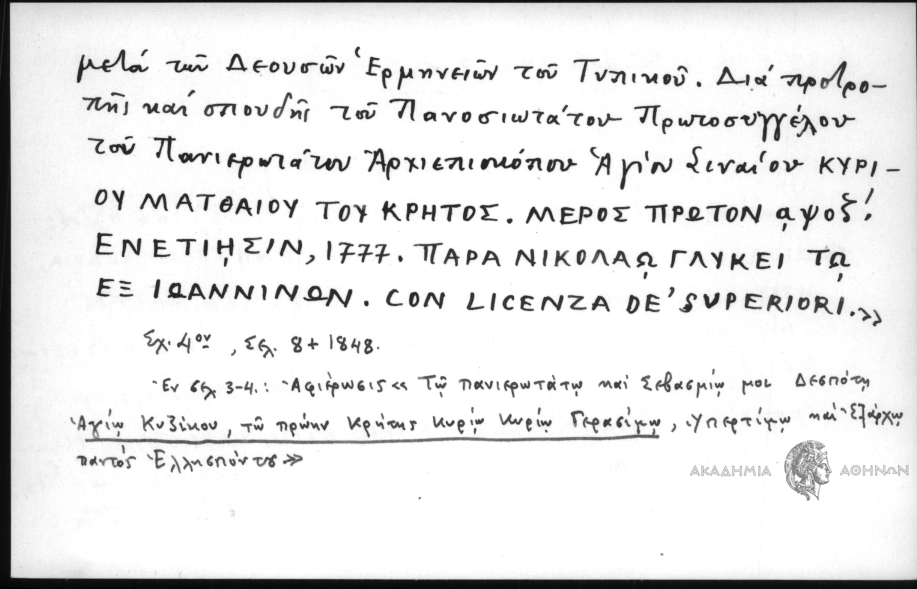 μετά τῶν Δεουσῶν Ἑρμηνειῶν τοῦ Τυπικοῦ. Διά προτρο-
πῆς καί σπουδῆς τοῦ Πανοσιωτάτου Πρωτοσυγγέλου
τοῦ Πανιερωτάτου Ἀρχιεπισκόπου Ἁγίου Σιναίου ΚΥΡΙ-
ΟΥ ΜΑΤΘΑΙΟΥ ΤΟΥ ΚΡΗΤΟΣ. ΜΕΡΟΣ ΠΡΩΤΟΝ αψοζ!
ΕΝΕΤΙῌΣΙΝ, 1777. ΠΑΡΑ ΝΙΚΟΛΑῼ ΓΛΥΚΕΙ Τῼ
ΕΞ ΙΩΑΝΝΙΝΩΝ. CON LICENZA DE' SUPERIORI.»
Σχ. 4ον, Σελ. 8+1848.
Ἐν σελ. 3-4.: Ἀφιέρωσις «Τῷ πανιερωτάτῳ καί Σεβασμίῳ μοι Δεσπότῃ
Ἁγίῳ Κυζίκου, τῷ πρώην Κρήτης Κυρίῳ Κυρίῳ Γερασίμῳ, Ὑπερτίμῳ καί Ἐξάρχῳ
παντός Ἑλλησπόντου»
ΑΚΑΔΗΜΙΑ ΑΘΗΝΩΝ